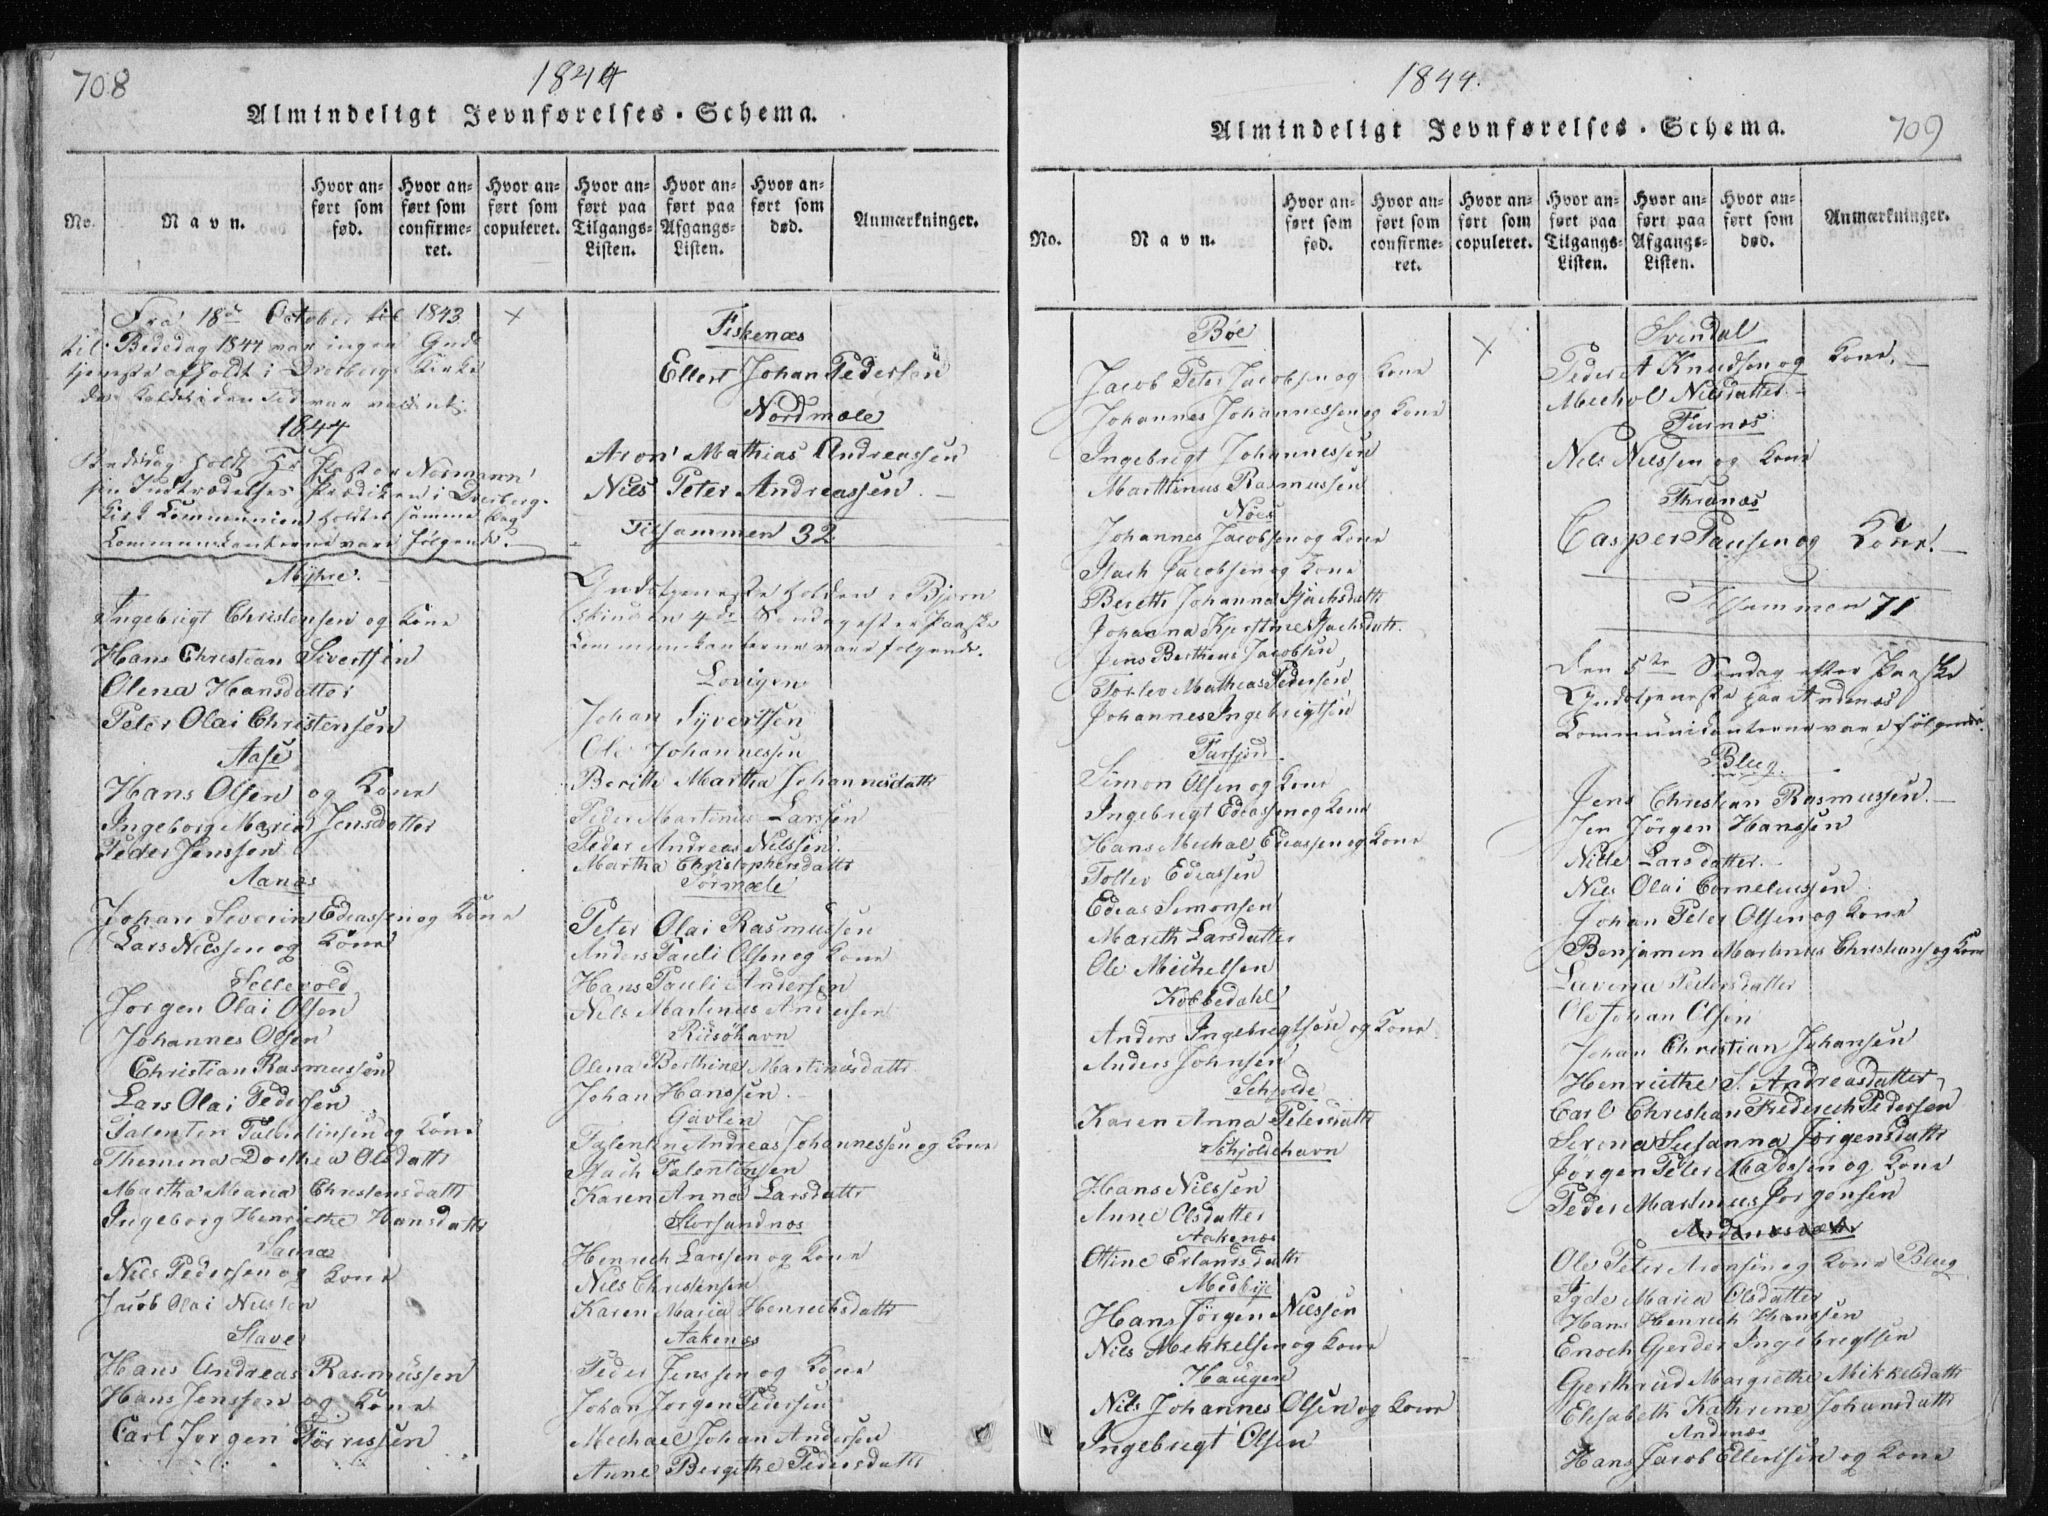 708
1844
Almindeligt Jevnførelses-Schema.
No.
Navn.
Hvor anført som fød.
Hvor anført som confirmeret.
Hvor anført som copuleret.
Hvor anført paa Tilgangs-Listen.
Hvor anført paa Afgangs-Listen.
Hvor anført som død.
Anmærkninger.
Fra 18de October til 1843
til Bededag 1844 var ingen Gude
tjeneste afholdt i Dverbergs Kirke
da Kaldet i den Tid var vacant.
1844
Bededag holdt Hr Pastor Normann
sin Indtrædelses Prædiken i Dverberg
Kirk Communion holdtes samme Dag
Communikanterne vare følgende.
Myhre.
Ingebrigt Christensen og Kone
Hans Christian Sivertsen
Olena Hansdatter
Peter Olai Christensen
Aase
Hans Olsen og Kone
Ingeborg Maria Jensdatter
Peder Jenssen
Aanes
Johan Severin Edeassen og Kone
Lars Nilssen og Kone
Sellevold
Jørgen Olai Olsen
Johannes Olsen
Christian Rasmussen
Lars Olai Pedersen
Talentin Talentinsen og Kone
Themina Dorthea Olsdattr
Martha Maria Christensdattr
Ingeborg Henriethe Hansdattr
Saura
Nils Pedersen og Kone
Jacob Olai Nilssen
Stave
Hans Andreas Rasmussen
Hans Jenssen og Kone
Carl Jørgen Tørrissen
Fiskenæs
Ellert Johan Pedersen
Nordmæle
Aron Mathias Andreassen
Nils Peter Andreassen
Tilsammen 32
Gudstjeneste holden i Bjørn
skinn den 4de Søndag efter Paaske
Communikanterne vare følgende.
Lovigen
Johan Syvertsen
Ole Johannessen
Berith Martha Johannisdattr
Peder Martinus Larssen
Peder Andreas Nilssen
Martha Christophersdattr
Sørmæle
Peter Olai Rasmussen
Anders Pauli Olsen og Kone
Hans Pauli Andersen
Nils Martinus Andersen
Risøhavn
Olena Berthine Martinusdattr
Johan Hanssen
Gavlen
Talentin Andreas Johannessen og Kone
Isach Talentinsen
Karen Anna Larsdattr
Storsandnes
Henrech Larssen og Kone
Nils Christensen
Karen Maria Henrechsdattr
Aakenes
Peder Jenssen og Kone
Johan Jørgen Pedersen
Mechael Johan Andersen
Anne Bergithe Pedersdattr
1844.
709
Almindeligt Jevnførelses-Schema.
No.
Navn.
Hvor anført som fød.
Hvor anført som confirmeret.
Hvor anført som copuleret.
Hvor anført paa Tilgangs-Listen.
Hvor anført paa Afgangs-Listen.
Hvor anført som død.
Anmærkninger.
Bøe
Jacob Peter Jacobsen og Kone
Johannes Johannessen og Kone
Ingebrigt Johannessen
Marttinus Rasmussen
Nøes
Johannes Jacobsen og Kone
Isach Jacobsen og Kone
Bereth Johanna Isachsdattr
Johanna Kjerstine Isachsdattr.
Jens Bertheus Jacobsen
Torlev Mathias Pedersen
Johannes Ingebrigtsen
Simon Olsen og Kone
Ingebregt Edeassen og Kone
Hans Mechal Edeassen og Kone
Tollev Edeassen
Edeas Simonsen
Mareth Larsdatter
Ole Michelsen
Kobbedahl
Anders Ingebregtsen og Kone
Anders Johnsen
Schjolde
Karen Anna Petersdattr
Schjoldehavn
Hans Nilssen
Anne Olsdatter
Aakenæs
Ottine Erlandsdattr
Medbye
Hans Jørgen Nilssen
Nils Mekkelsen og Kone
Haugen
Nils Johannes Olsen og Kone
Ingebregt Olsen
Svendal
Peder A Knudsen og Kone
Mechol Nilsdatter
Nils Nilssen og Kone
Thranæs
Casper Pausen og Kone.
Tilsammen 71
Den 5te Søndag efter Paaske
Gudstjeneste paa Andenæs
Communikanterne vare følgende.
Bleeg
Jens Christian Rasmussen
Jen Jørgen Hanssen
Nille Larsdatter
Nils Olai Corneliussen
Johan Peter Olsen og Kone
Benjamen Martinus Christians og Kone
Lavina Pedersdatter
Ole Johan Olsen
Johan Christian Johansen
Henriethe S. Andreasdatter
Carl Christian Frederech Pedersen
Serena Susanna Jørgensdattr
Jørgen Peter Madssen og Kone
Peder Martinus Jørgensen
Ole Peter Aronsen og Kone Bleeg
Igde Maria Olsdatter
Hans Henrech Hanssen
Enoch Gjerder Ingebregtsen
Gjerthrud Margrethe Mikkelsdattr
Elisabeth Kathrine Johansdattr
Andenæs
Hans Jacob Ellertsen og Kone